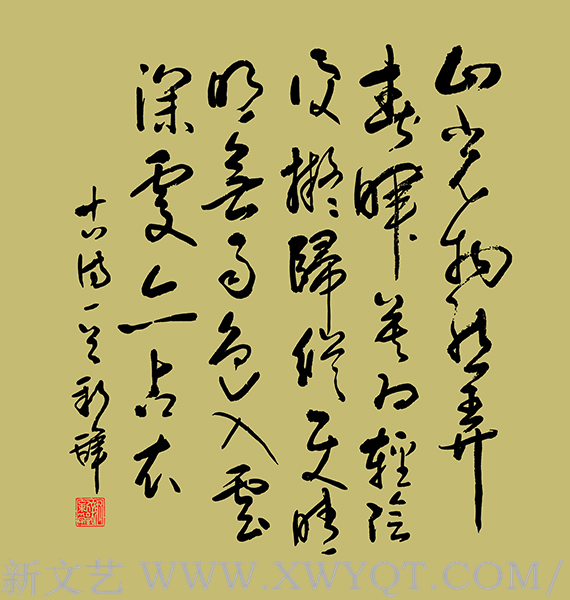 山光物態弄
春暉莫為輕陰
便擬歸縱使晴
明無雨色入雲
深處亦沾衣
詩一首
新文艺 WWW.XWYQT.COM/